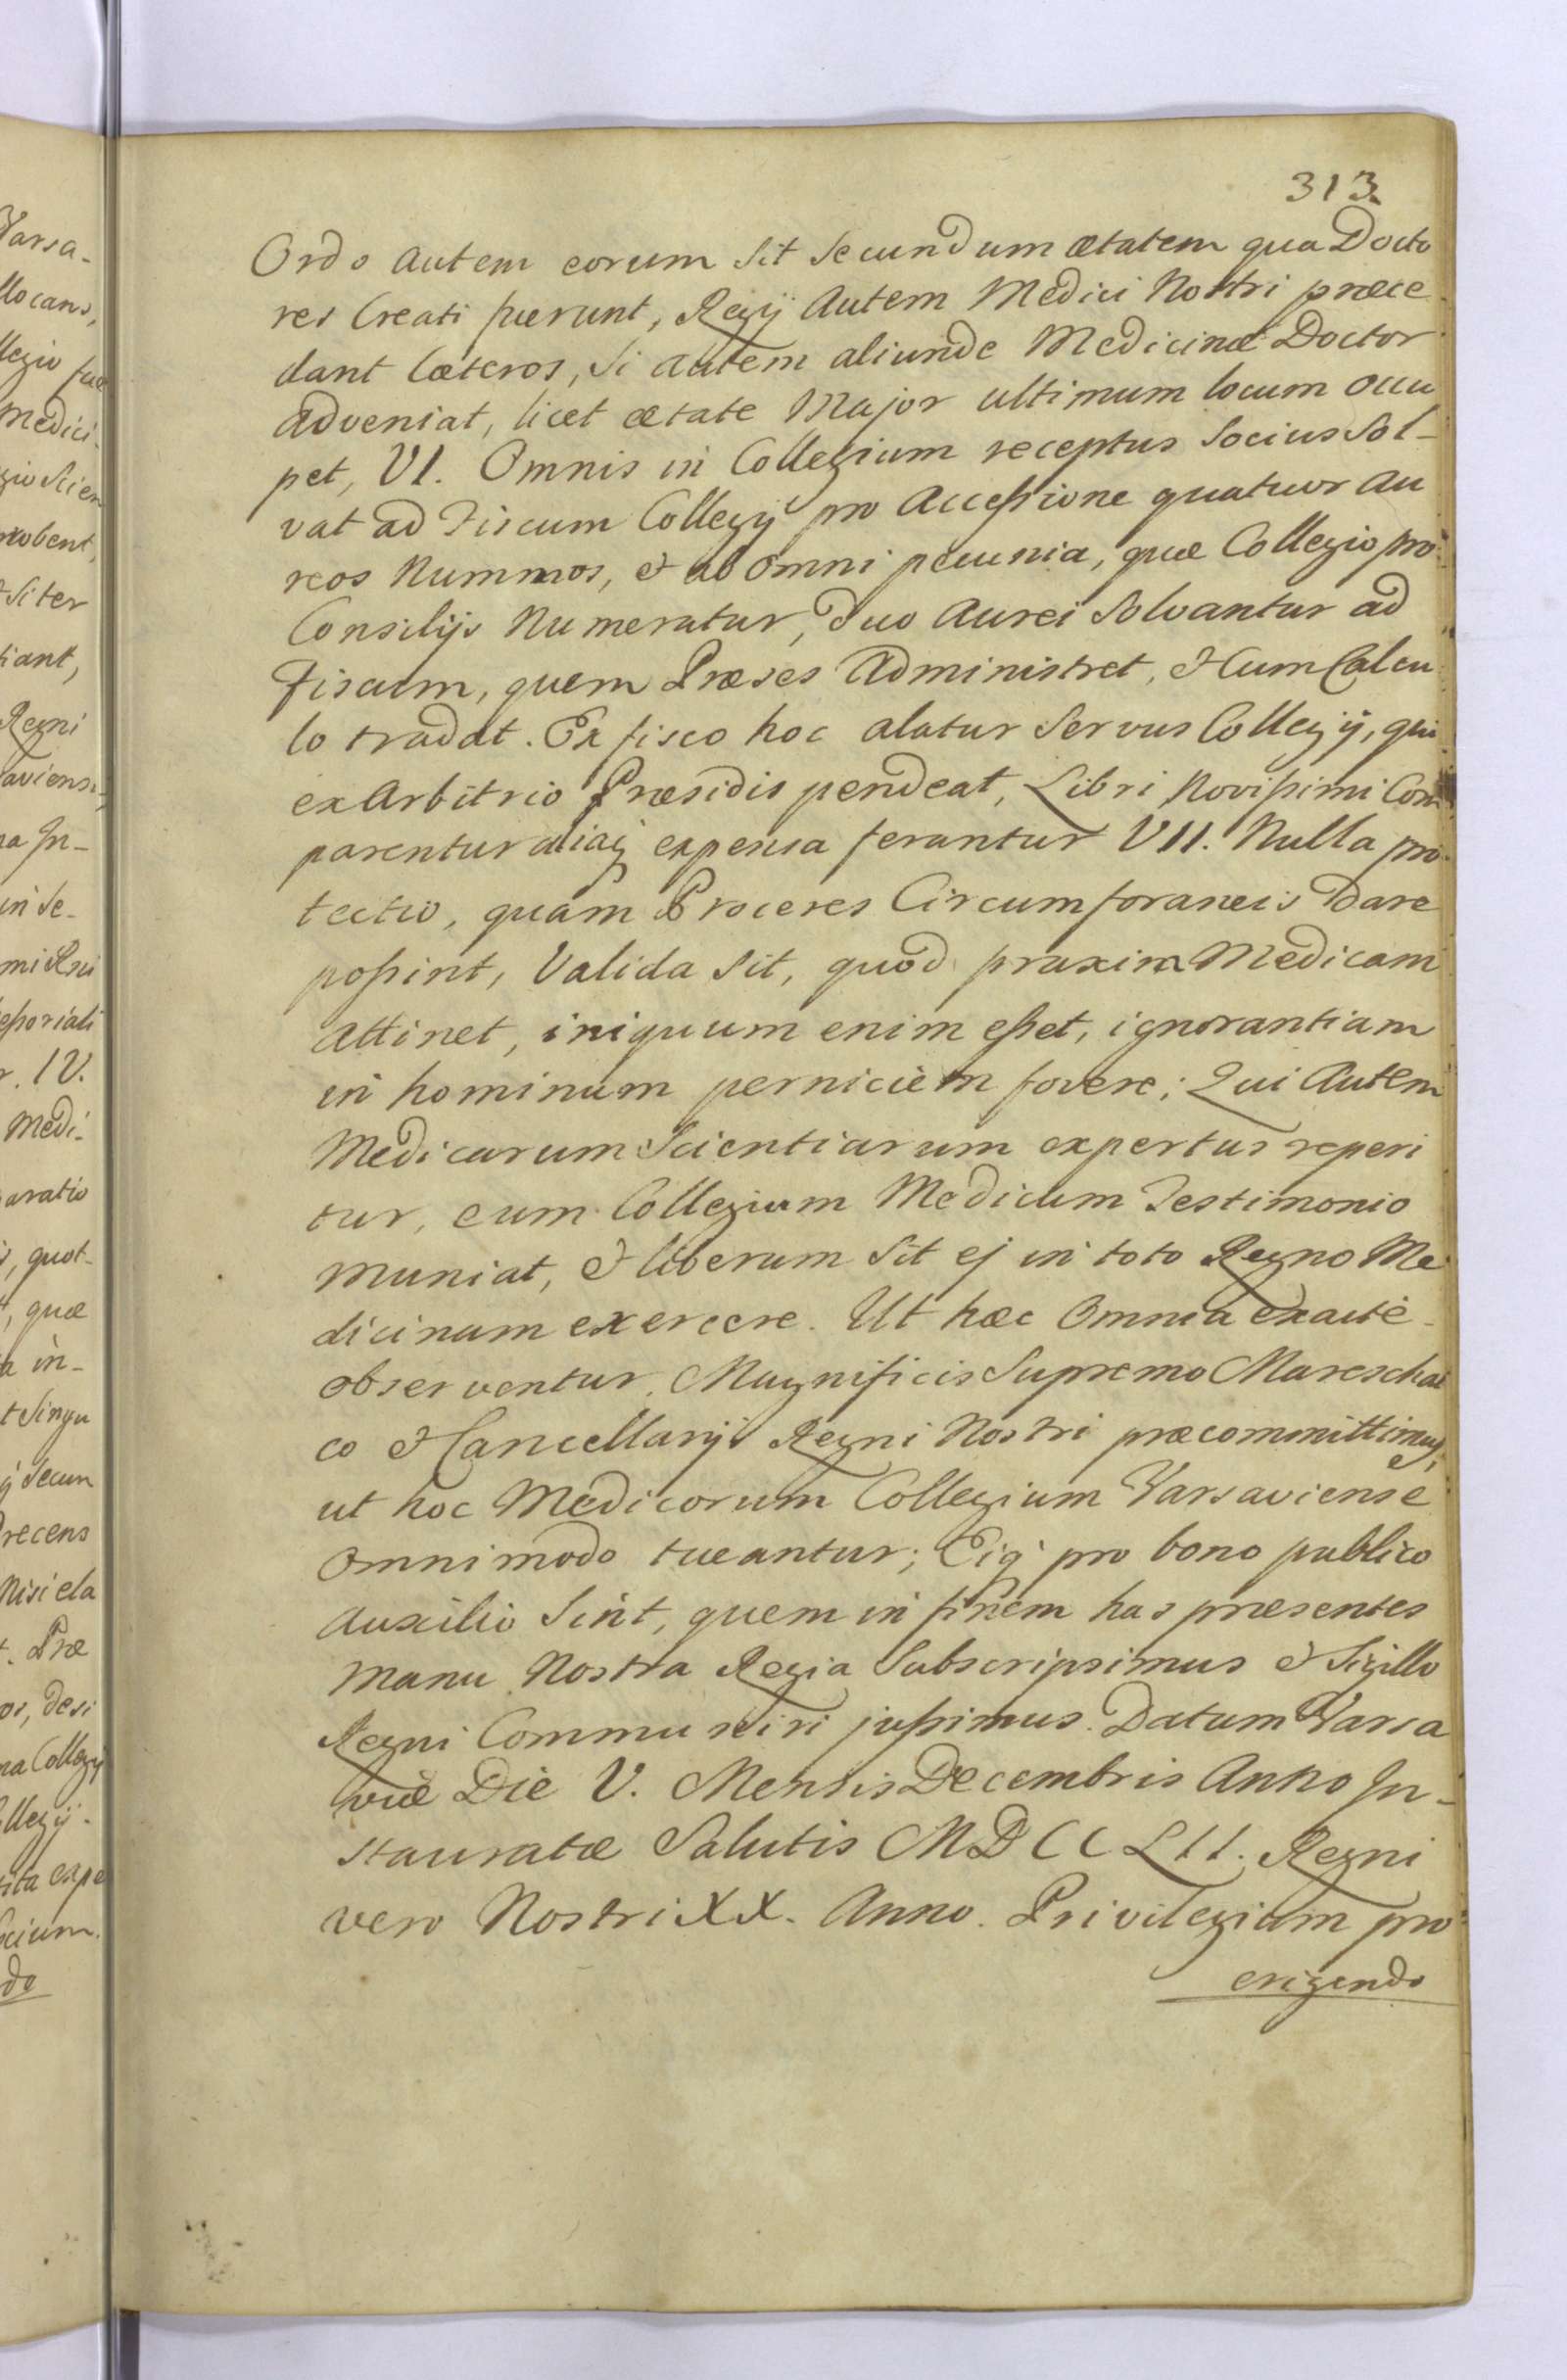 313.
Ordo autem eorum sit secundum ætatem qua Docto
res Creati fuerunt, Regij autem Medici Nostri præce
dant Cæteros, si autem aliunde Medicinæ Doctor
adveniat, licet ætate Major ultimum locum occu
pet, VI. Omnis in Collegium receptus Socius Sol-
vat ad Fiscum Collegij pro Accessione quatuor au
reos Nummos, & ab omni pecunia, quæ Collegio pro
Consilijs Numeratur, duo aurei Solvantur ad
Fiscum, quem Præses Administret, & Cum Calcu
lo tradat. Ex fisco hoc alatur Servus Collegij, qui
ex Arbitrio Præsidis pendeat, Libri Novissimi Com
parentur aliaq expensa ferantur VII. Nulla pro
tectio, quam Proceres Circumforaneis Dare
possint, Valida sit, quod praxim Medicam
attinet, iniquum enim esset, ignorantiam
in hominum perniciem fovere; Qui Autem
Medicarum Scientiarum expertus reperi
tur, eum Collegium Medicum Testimonio
muniat, & liberum sit ej in toto Regno Me
dicinam exercere. Ut hæc Omnia exacte
observentur, Magnificis Supremo Mareschal
co & Cancellarijs Regni Nostri præcommittimus,
ut hoc Medicorum Collegium Varsaviense
Omnimodo tueantur; Eiq pro bono publico
auxilio Sint, quem in finem has præsentes
Manu Nostra Regia Subscripsimus & Sigillo
Regni Communiri jussimus. Datum Varsa
viæ Die V. Mensis Decembris Anno In-
stauratæ Salutis MDCCLII. Regni
vero Nostri XX. Anno. Privilegium pro
erigendo
Varsa-
llocans,
Medici-
Regni
in se-
IV.
Medi-
aratio
quot-
quæ
in-
t Singu
Secun
recens
Nisi ela
Præ
desi
Collegij